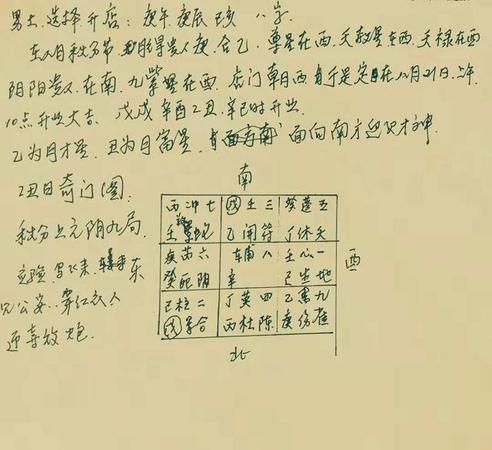 男士选择开店：庚午 庚辰 己亥 八字
在八月秋分节 贵人庚合乙，尊星在西，天赦星在西，天禄在西
阴阳贵人在南，九紫星在西，店门朝西 于是定在八月21日上午
10点开业大吉，戊戌 辛酉 乙丑，辛巳时开业
乙为月才星，丑为月富星，面向南方迎正才神
南
乙丑日奇门图：
秋分上元阴九局，
东
兄公婆，穿红衣人
迎喜放炮，
丙冲七 戊壬三 癸蓬五
壬 乙开符 丁休天
庚芮六 东辅八 壬心一
癸死阴 辛 己生地
己柱二 丁英四 乙 九
戊 合 丙杜陈 庚伤雀
酉
北